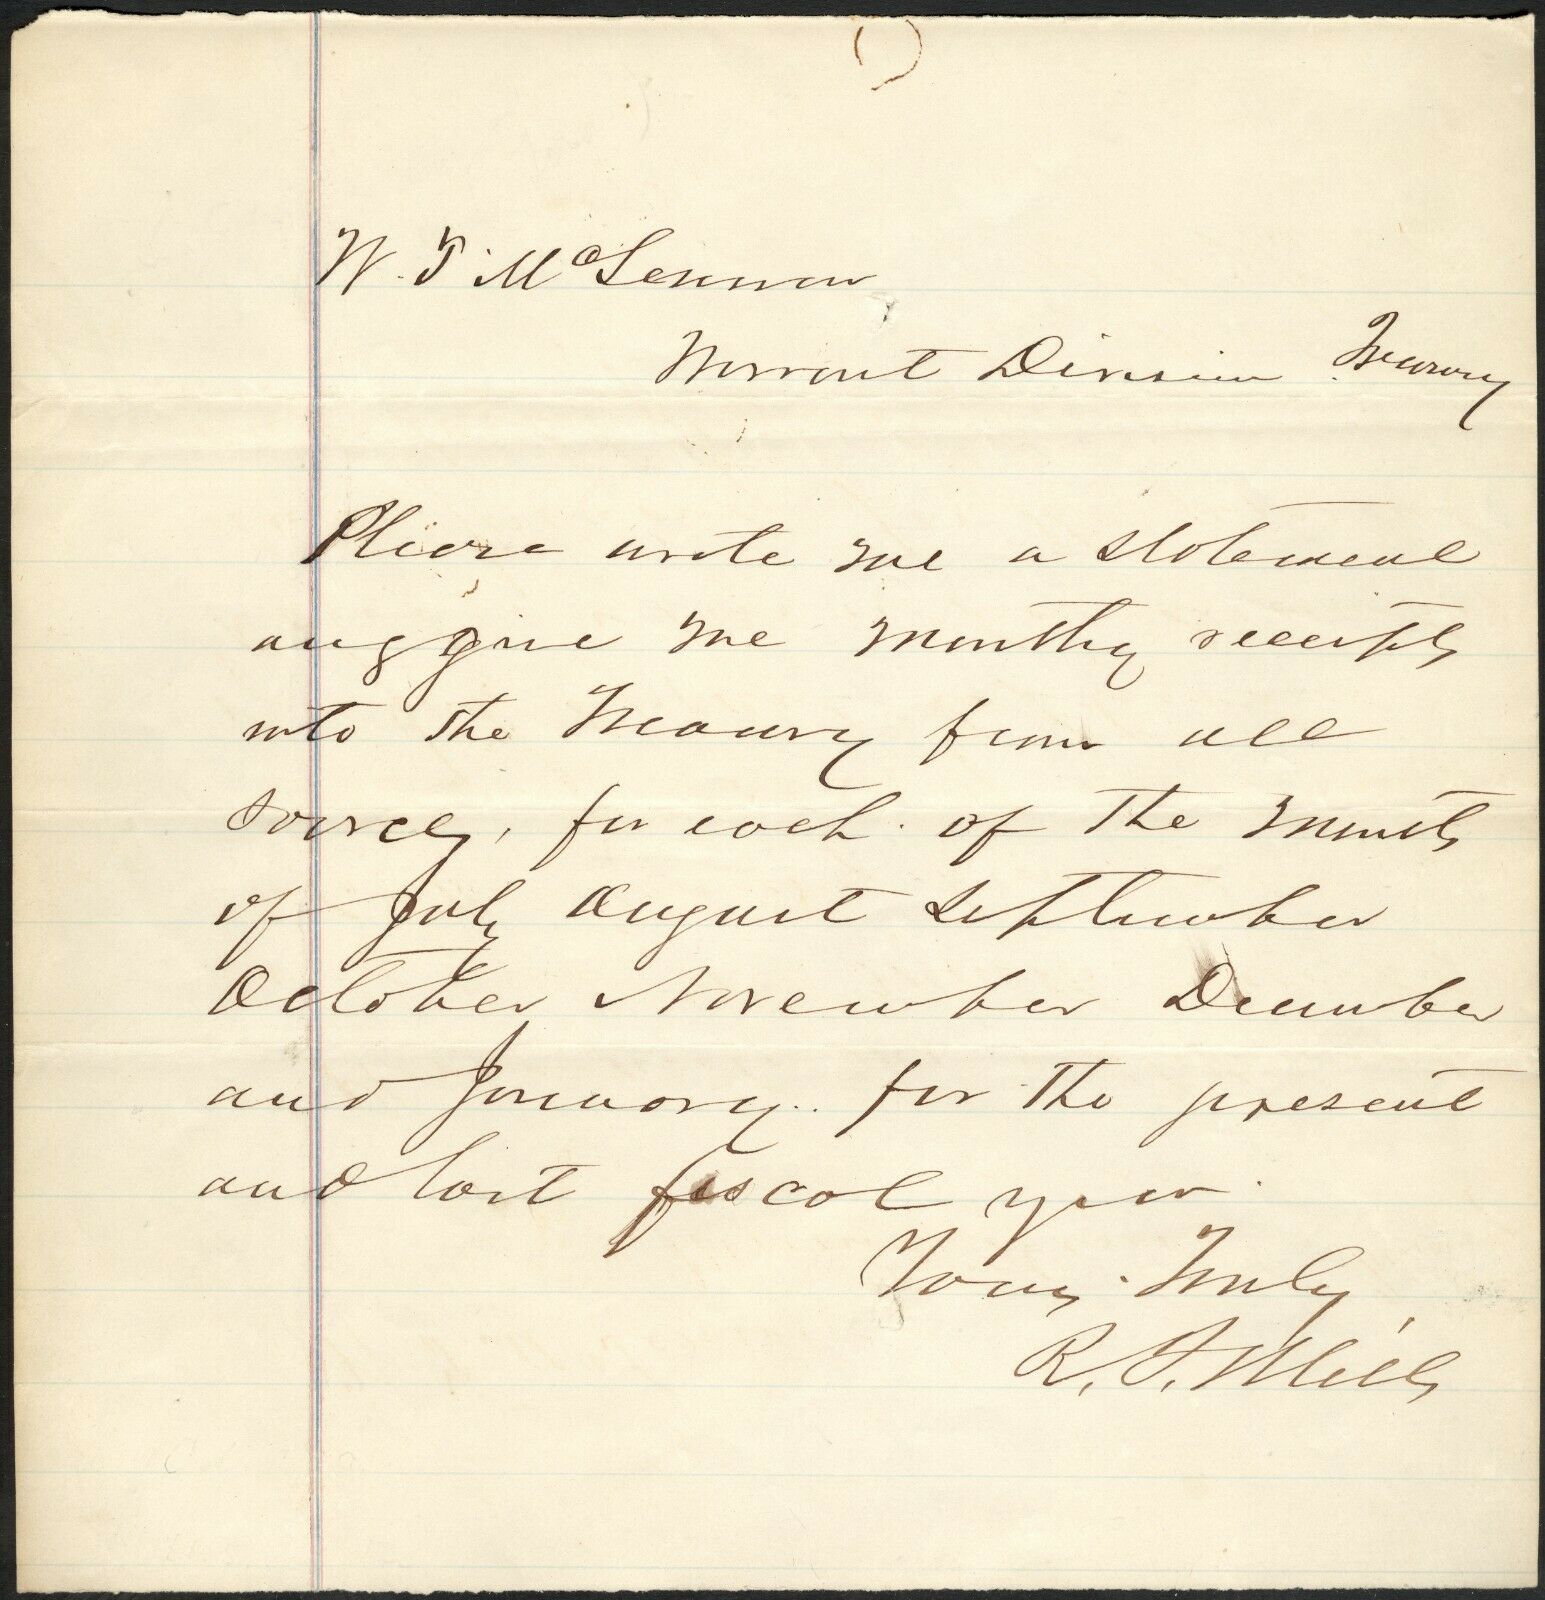 W. F. McLennan
Warrant Division Treasury
Please write me a statement
and give me monthly receipts
into the Treasury from all
sources, for each of the months
of July August September
October November December
and January for the present
and last fiscal year.
Yours Truly
R. Q. Mills